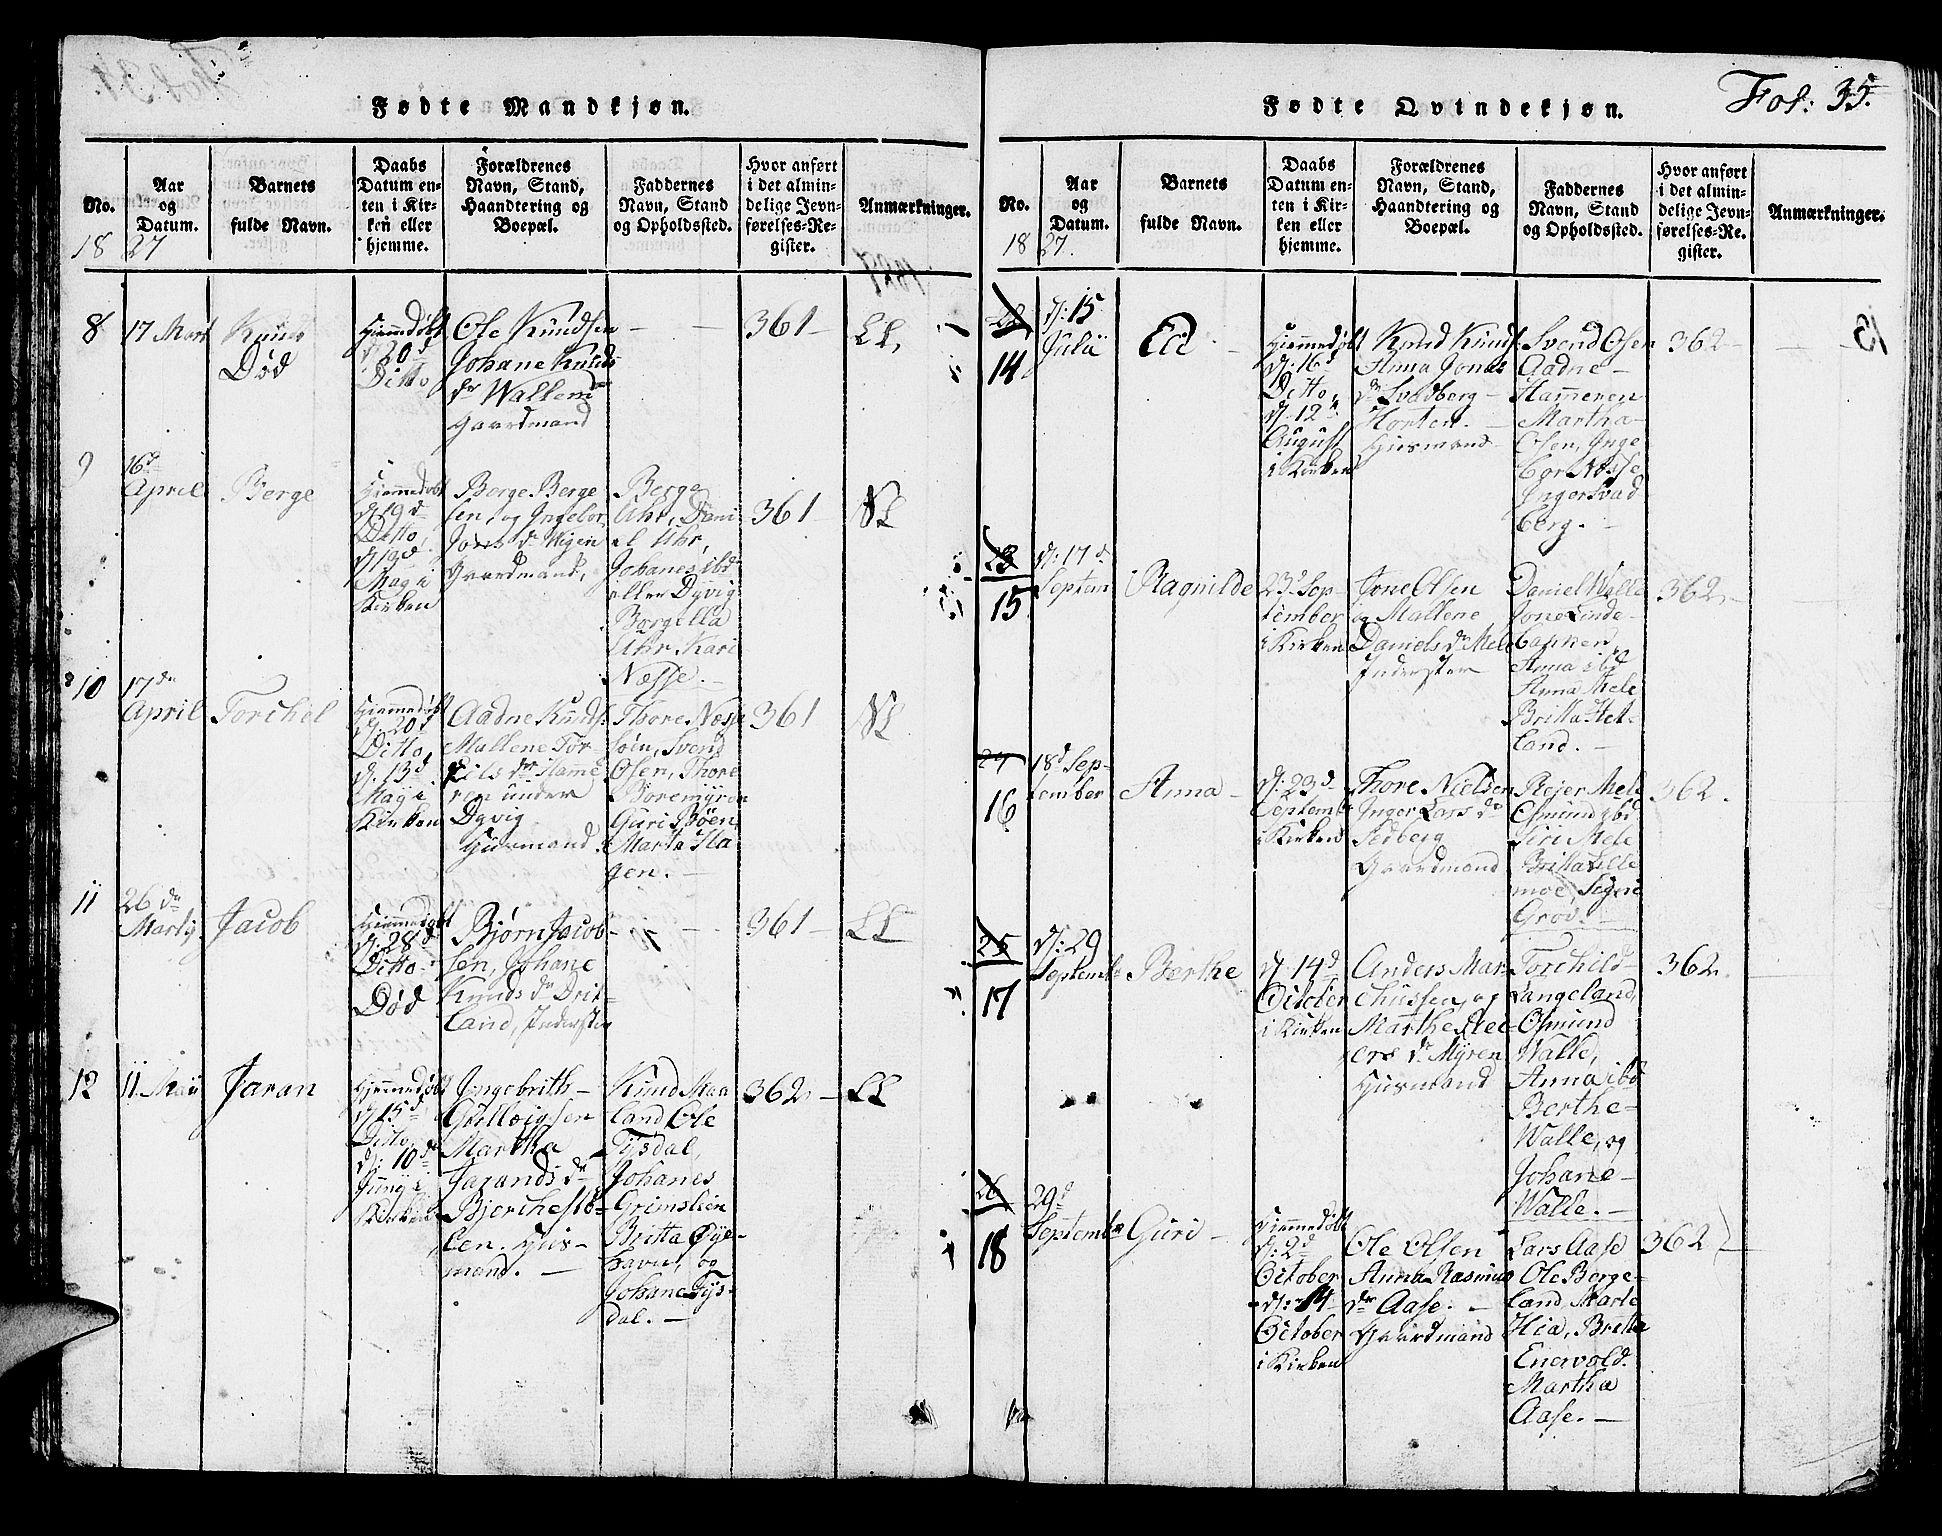 Fødte Mandkjøn.
No.
Aar
og
Datum.
Barnets
fulde Navn.
Daabs
Datum en-
ten i Kir-
ken eller
hjemme.
Forældrenes
Navn, Stand,
Haandtering og
Boepæl.
Faddernes
Navn, Stand
og Opholdssted.
Hvor anført
i det almin-
delige Jevn-
førelses-Re-
gister.
Anmærkninger.
1827
8
17 Mart
Død
Hiemmedøbt
d: 20d
Ditto
Ole Knudsen
Johane Knuds
dr Wallem
Gaardmand
361
9
16d
April
Berge
Hiemmedøbt
d. 19d
Ditto,
May i
Kirken
Berge Berge
sen, og Ingebor
Gaardmand,
Berge
Uhr, Dani
el Uhr,
Johanes ibd
eller Dyvig
Borgilla
Uhr Kari
Næsse.
361
10
17de
April
Torchel
Hiemmedøbt
d. 20d
Ditto,
d. 13d
May i
Kirken
Aadne Knuds:
Mallene Tor-
kils dr Hamme
ren under
Dyvig
Huusmand
Thore Næss
Svend
Olsen, Thore
Boremyren
Guri Bøen
Marta Ha
gen.
361
11
26de
Marty
Jacob
Hiemmedøbt
d: 28d
Ditto
Død
Bjørn Jacob-
sen, Johane
Knuds dr Drit-
land, Inderster
361
12
11 Maii
Jaran
Hiemmedøbt
d. 15d
Ditto,
d: 10d
Juny i
Kirken
Ingebrith
Guttoigsen
Martha
Jarands dr
Bjerchestø-
len. Huus-
mand.
Knud Maa
land Ole
Tysdal,
Johanes
Grimslien
Britta Øye-
havn, og
Johane Tys-
dal.
362
Fødte Qvindekjøn.
Fol: 35.
No.
Aar
og
Datum.
Barnets
fulde Navn.
Daabs
Datum en-
ten i Kir-
ken eller
hjemme.
Forældrenes
Navn, Stand,
Haandtering og
Boepæl.
Faddernes
Navn, Stand
og Opholdssted.
Hvor anført
i det almin-
delige Jevn-
førelses-Re-
gister.
Anmærkninger.
1827.
14
d: 15
Julii
Eli
Hiemmedøbt
d: 16d
Ditto,
d. 12
August
i Kirken
Knud Knuds:
Anna Jonas
dr Svadberg
Horten.
Huusmand
Svend Olsen
Aadne
Hameren
Martha
Olsen, Inge
bor Næsse
Inger Svad
berg.
362
15
d: 17d
Septem
Ragnilde
23d Sep-
tember
i Kirken
Jone Olsen
og Mallene
Daniels dr Mele
Inderster
Daniel Walle
Jone Linde-
bakken
Anna ibd
Anna Mele
Britta Het-
land.
362
16
18d Sep-
tember
Anna
d: 23d
Septembr
i Kirken
Thore Nielsen
Inger Lars dr
Sedberg
Gaardmand
Rejer Mele
Osmund ibd
Siri Mele
Britta Lille
moe, Signe
Grov.
362
25
17
d: 29
Septembe
Berthe
d. 14d
October
i Kirken
Anders Mar-
thussen, og
Marthe Rei-
ers dr Myren
Huusmand
Torchild
Langeland,
Osmund
Walle,
Anna ibd
Berthe
Walle, og
Johane
Walle.
362
26
18
29d
Septembe
Guri
Hiemmedøbt
d: 2d
October
d: 14
October
i Kirken
Ole Olsen
Anna Rasmus
dr Aase.
Gaardmand
Lars Aase
Ole Berge-
land, Marte
Hia, Britte
Enervold.
Martha
Aase.
362